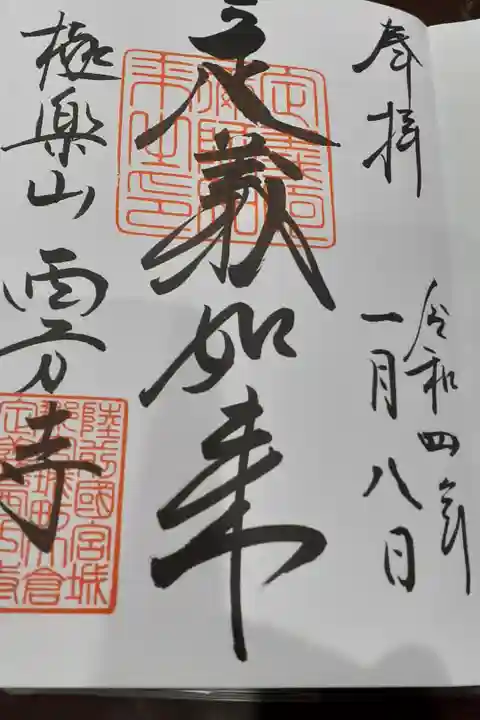 奉拝
令和四年
一月八日
定義如来
極楽山 西方寺
陸前國宮城